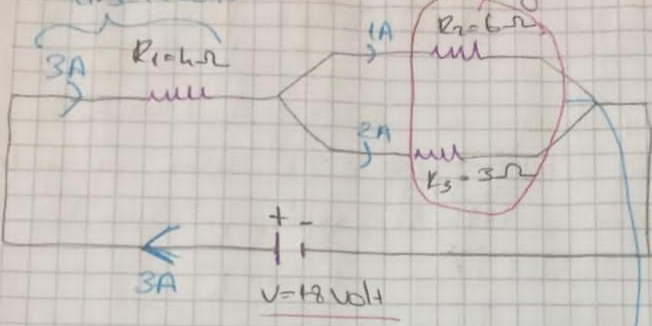 3A
R₁=4Ω
1A
R₂=6Ω
2A
R₃=3Ω
+ -
3A
V=18 Volt